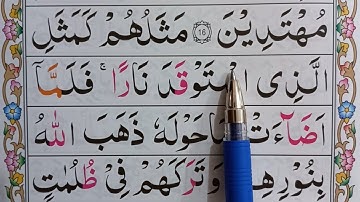 مُهْتَدِیْنَ ۝16 مَثَلُهُمْ كَمَثَلِ
الَّذِی اسْتَوْقَدَ نَارًا ۚ فَلَمَّاۤ
اَضَآءَتْ مَاحَوْلَهٗ ذَهَبَ اللّٰهُ
بِنُوْرِهِمْ وَتَرَكَهُمْ فِیْ ظُلُمٰتٍ